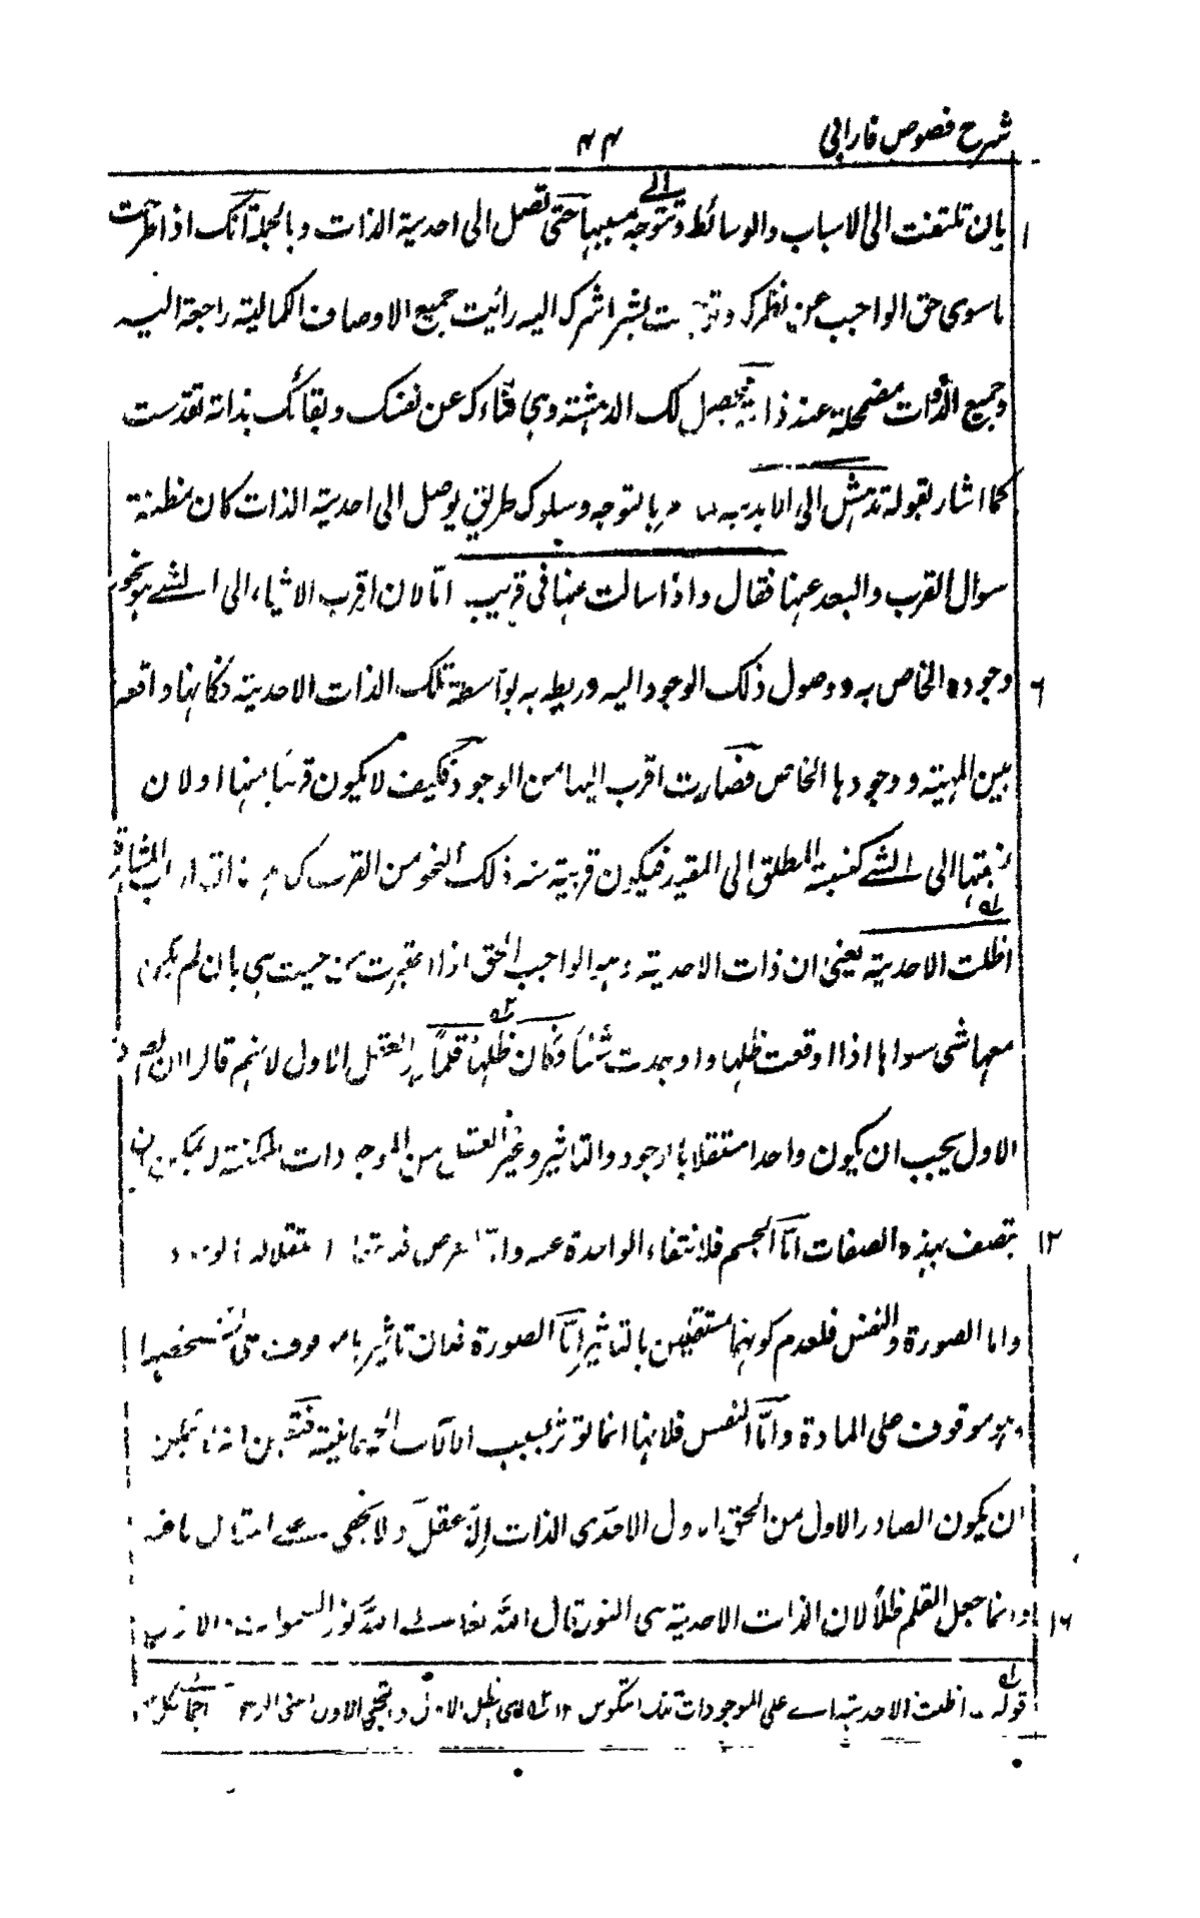 شرح فصوص فارابی ۴۴
۱ بان تلتفت الی الاسباب والوسائط وتتوجه الی مسببها حتی تصل الی احدیة الذات وبالجملة انک اذا طرحت
ما سوی حق الواجب عن نظرک بشراشرک الیه رائیت جمیع الاوصاف الکمالیة راجعة الیه
وجمیع الذوات مضمحلة عند ذاته فیحصل لک الدهشة وهی فناءک عن نفسک وبقائک بذاته تقدست
کما اشار بقوله تدهش الی الابدیه بالتوجه وسلوک طریق یوصل الی احدیة الذات کان مظنة
سوال القرب والبعد عنها فقال واذا سالت عنها فی قریب امّا لان اقرب الاشیاء الی الشئ هو نحو
۶ وجوده الخاص به ووصول ذلک الوجود الیه وربطه به بواسطة تلک الذات الاحدیة فکانها واقعة
بین المهیة ووجودها الخاص فصارت اقرب الیها من الوجود فکیف لا یکون قریبا منها اولان
نسبتها الی الشئ کنسبة المطلق الی المقید فیکون قریبة منه ذلک النحو من القرب
اظلت الاحدیة یعنی ان ذات الاحدیة وهو الواجب الحق اذا اعتبرت من حیث هی بان لم یکن
معها شی سواها اذا اوقعت ظلها واوجدت شئیا فکان ظلها قلما العقل الاول لانهم قالوا ان الصادر
الاول یجب ان یکون واحدا مستقلا بالوجود والتاثیر وغیر العقل من الموجودات الممکنة لا یمکن ان
۱۲ تتصف بهذه الصفات امّا الجسم فلانتفاء الواحدة عنه استقلاله
واما الصورة والنفس فلعدم کونهما مستقلین بالتاثیر امّا الصورة فلان تاثیرها موقوف علی تشخصها
وهو موقوف علی المادة وامّا النفس فلانها انما توثر بسبب الالات الجسمانیة فتعین انه لا یمکن
ان یکون الصادر الاول من الحق الاول الاحدی الذات الا عقل ولا یخفی علیک امثال ما فیه
۱۶ وانما جعل القلم ظلاً لان الذات الاحدیة هی النور قال الله تعالی الله نور السموات والارض
قوله اظلت الاحدیة ای علی الموجودات